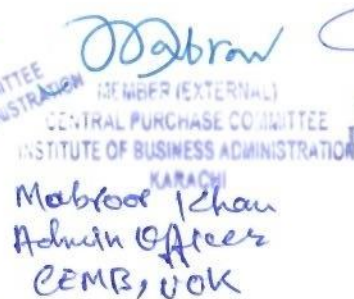 Mabroor
MITTEE
NISTRATION
MEMBER (EXTERNAL)
CENTRAL PURCHASE COMMITTEE
INSTITUTE OF BUSINESS ADMINISTRATION
KARACHI
Mabroor Khan
Admin Officer
CEMB, UOK